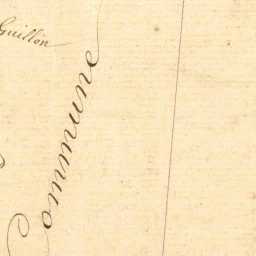 Guillon
Commune